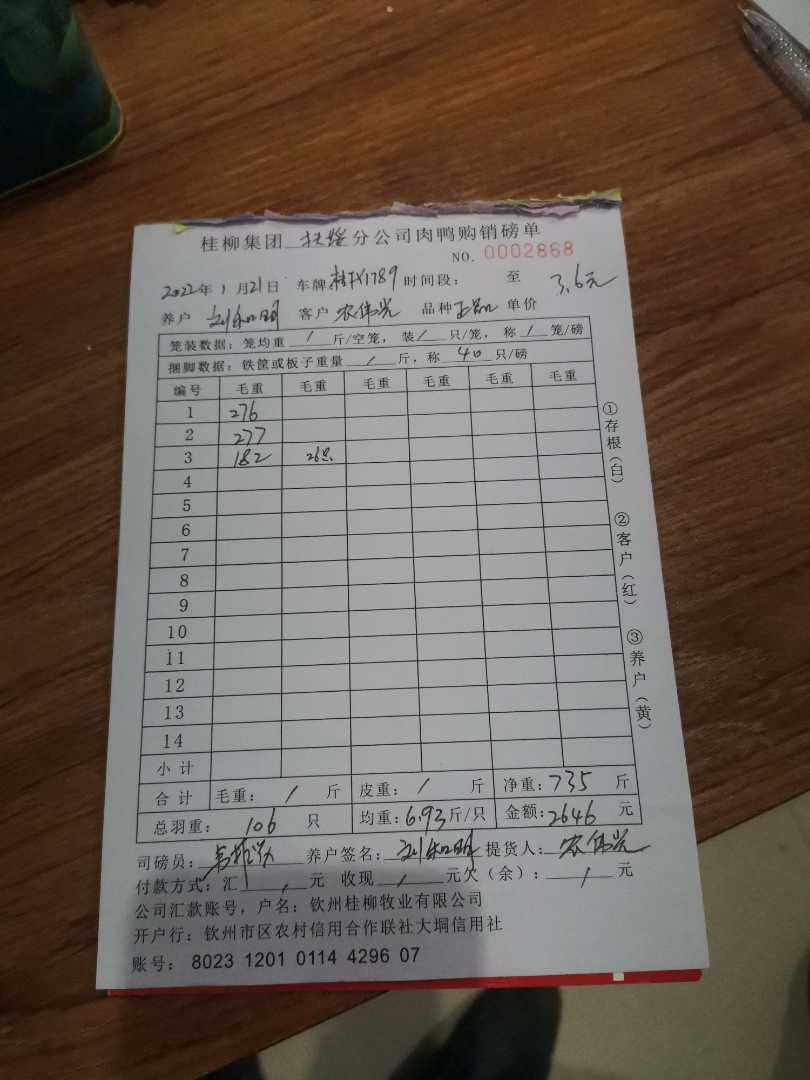 桂柳集团 扶绥 分公司肉鸭购销磅单
NO. 0002868
2022年1月21日 车牌 桂 1789 时间段： 至
养户 刘和明 客户 农伟光 品种 单价 3.6元
笼装数据：笼均重 / 斤/空笼，装 / 只/笼，称 / 笼/磅
捆脚数据：铁筐或板子重量 / 斤，称 40 只/磅
编号 毛重 毛重 毛重 毛重 毛重 毛重
1 276
2 277
3 182 26只
4
5
6
7
8
9
10
11
12
13
14
小计
合计 毛重： / 斤 皮重： / 斤 净重：735 斤
总羽重： 106 只 均重：6.93斤/只 金额：2646 元
司磅员： 养户签名：刘和明 提货人：农伟光
付款方式：汇 / 元 收现 / 元欠（余）： / 元
公司汇款账号，户名：钦州桂柳牧业有限公司
开户行：钦州市区农村信用合作联社大垌信用社
账号： 8023 1201 0114 4296 07
①存根（白）
②客户（红）
③养户（黄）